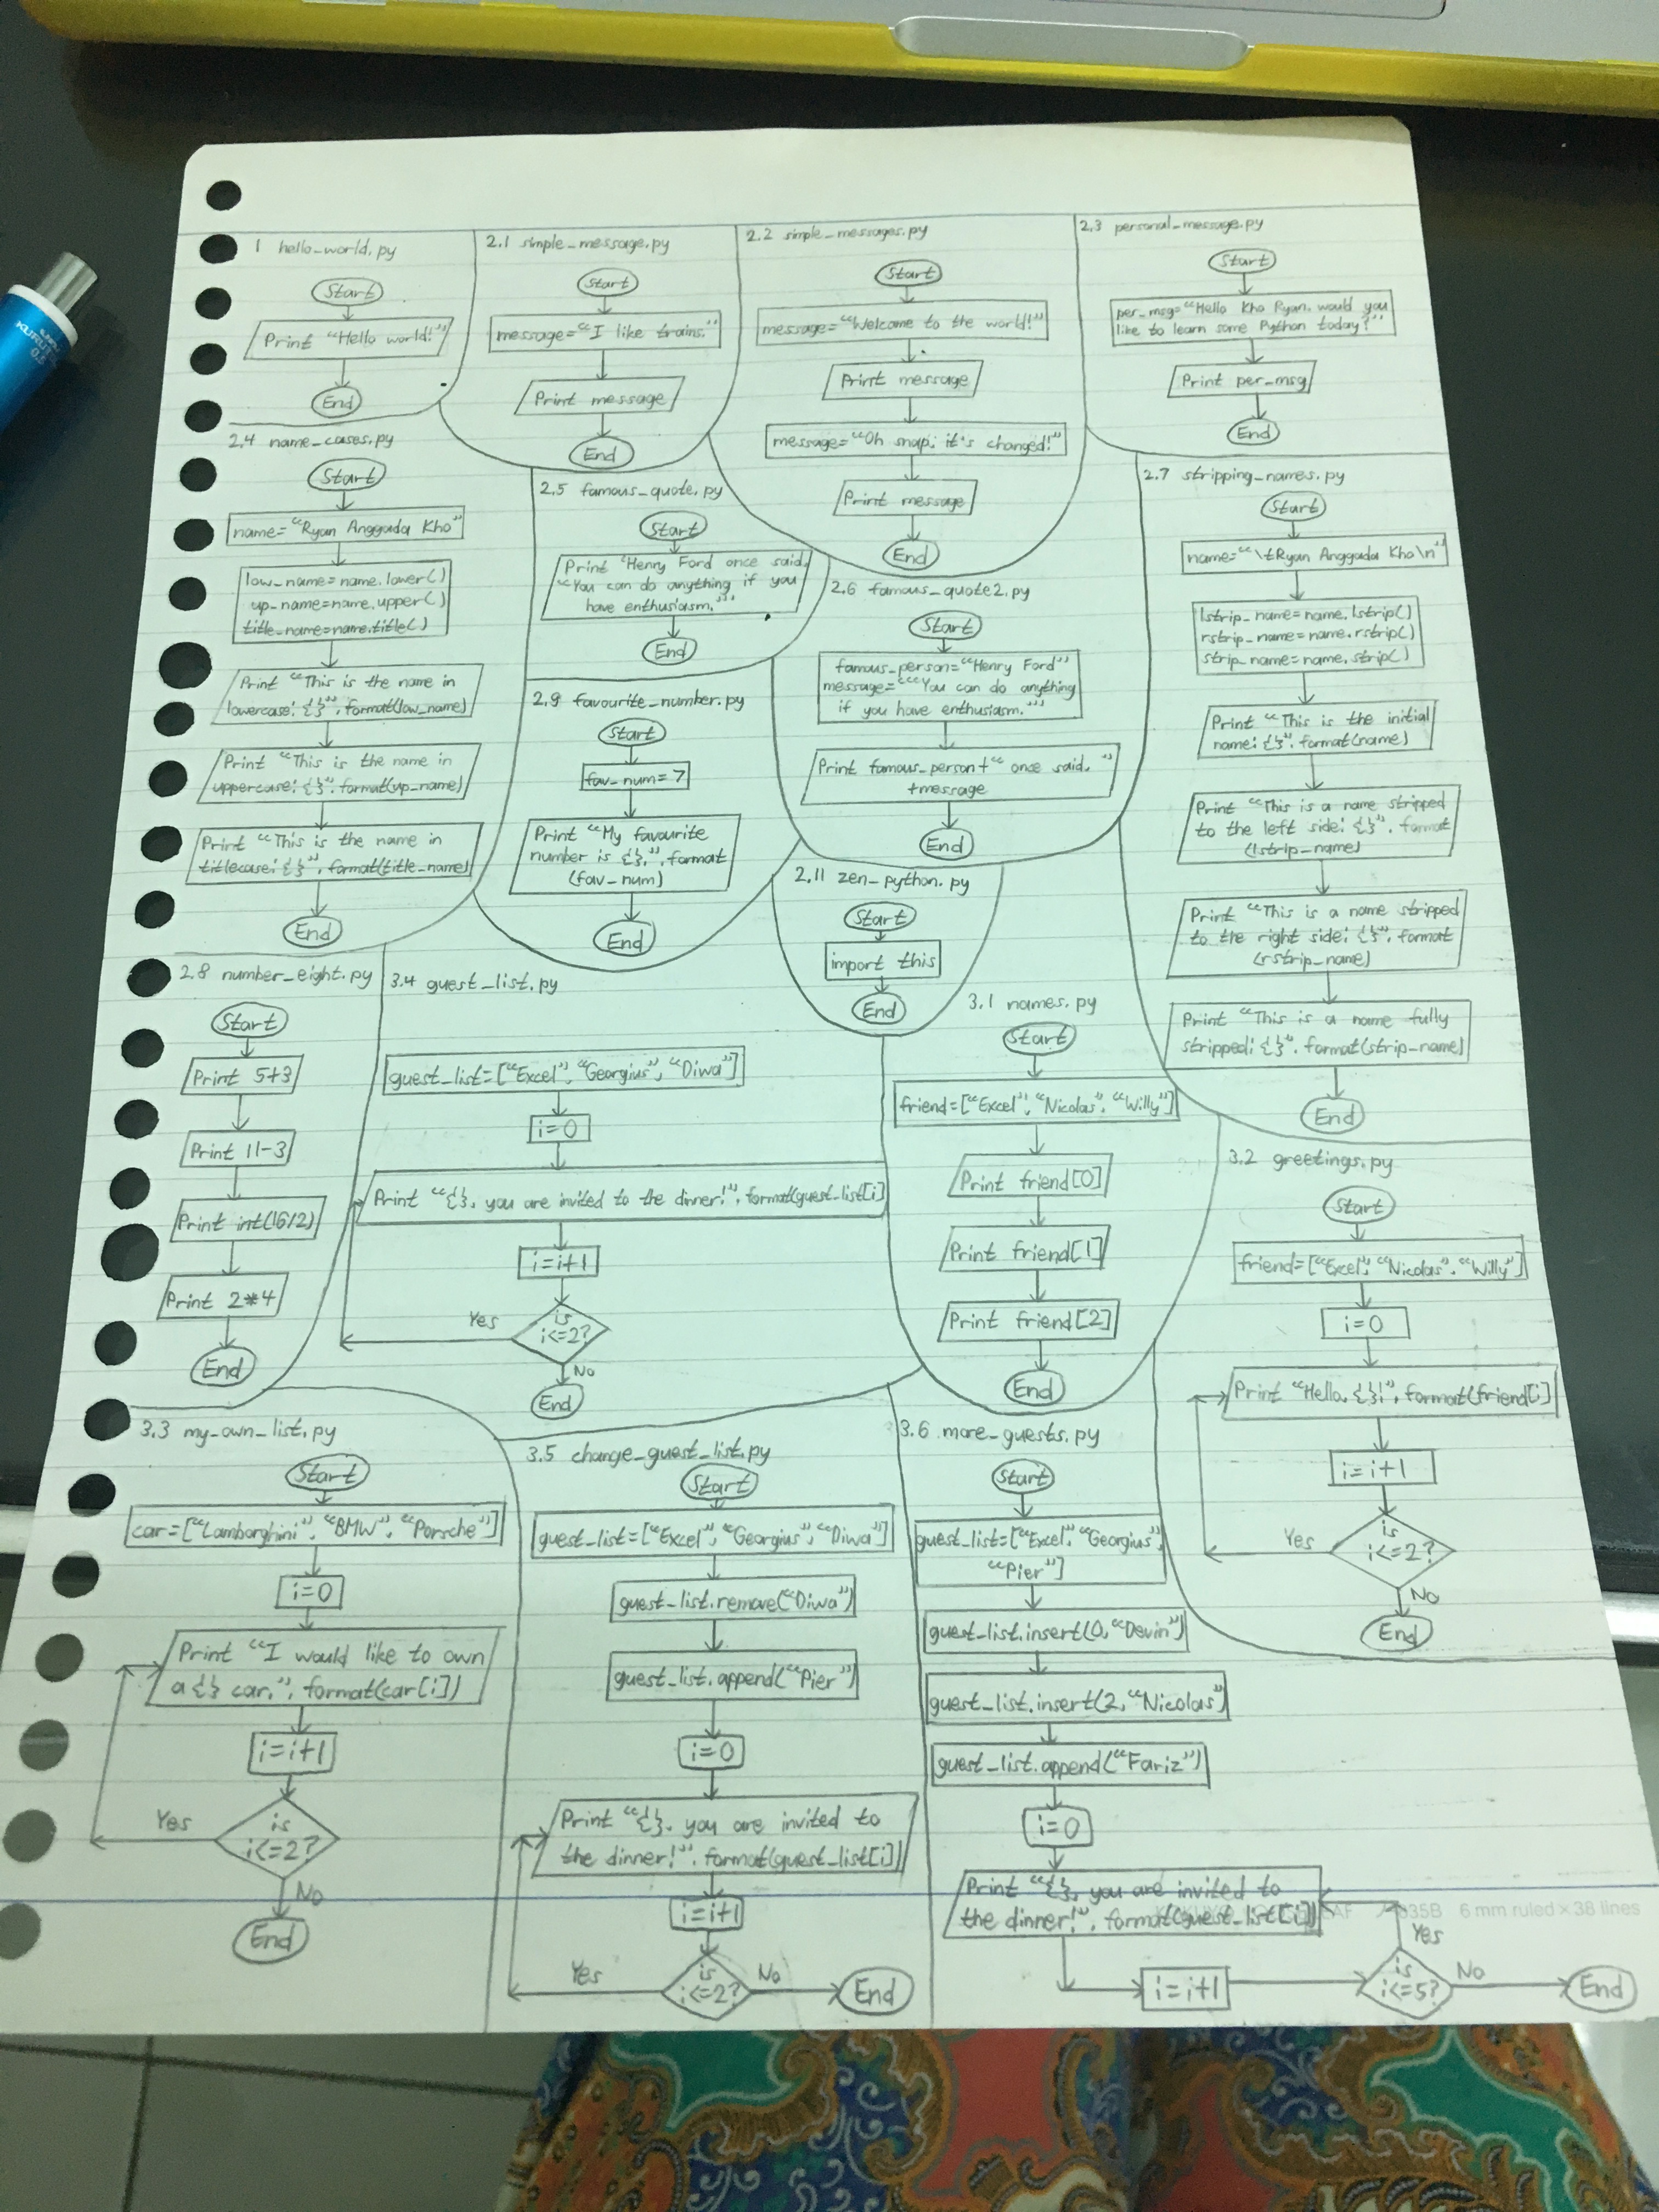 1 hello_world.py
Start
Print "Hello world!"
End
2.1 simple_message.py
Start
message="I like trains."
Print message
End
2.2 simple_messages.py
Start
message="Welcome to the world!"
Print message
message="Oh snap, it's changed!"
Print message
End
2.3 personal_message.py
Start
per_msg="Hello Kho Ryan, would you
like to learn some Python today?"
Print per_msg
End
2.4 name_cases.py
Start
name="Ryan Anggada Kho"
low_name=name.lower()
up_name=name.upper()
title_name=name.title()
Print "This is the name in
lowercase: {}".format(low_name)
Print "This is the name in
uppercase: {}".format(up_name)
Print "This is the name in
titlecase: {}".format(title_name)
End
2.5 famous_quote.py
Start
Print 'Henry Ford once said,
"You can do anything if you
have enthusiasm."'
End
2.6 famous_quote2.py
Start
famous_person="Henry Ford"
message='"You can do anything
if you have enthusiasm."'
Print famous_person+" once said, "
+message
End
2.7 stripping_names.py
Start
name="\tRyan Anggada Kho\n"
lstrip_name=name.lstrip()
rstrip_name=name.rstrip()
strip_name=name.strip()
Print "This is the initial
name: {}".format(name)
Print "This is a name stripped
to the left side: {}".format
(lstrip_name)
Print "This is a name stripped
to the right side: {}".format
(rstrip_name)
Print "This is a name fully
stripped: {}".format(strip_name)
End
2.9 favourite_number.py
Start
fav_num=7
Print "My favourite
number is {}.".format
(fav_num)
End
2.11 zen_python.py
Start
import this
End
2.8 number_eight.py
Start
Print 5+3
Print 11-3
Print int(16/2)
Print 2*4
End
3.4 guest_list.py
guest_list=["Excel","Georgius","Diwa"]
i=0
Print "{}, you are invited to the dinner!".format(guest_list[i]
i=i+1
is
i<=2?
Yes
No
End
3.1 names.py
Start
friend=["Excel","Nicolas","Willy"]
Print friend[0]
Print friend[1]
Print friend[2]
End
3.2 greetings.py
Start
friend=["Excel","Nicolas","Willy"]
i=0
Print "Hello, {}!".format(friend[i]
i=i+1
is
i<=2?
Yes
No
End
3.3 my_own_list.py
Start
car=["Lamborghini","BMW","Porsche"]
i=0
Print "I would like to own
a {} car.".format(car[i])
i=i+1
is
i<=2?
Yes
No
End
3.5 change_guest_list.py
Start
guest_list=["Excel","Georgius","Diwa"]
guest_list.remove("Diwa")
guest_list.append("Pier")
i=0
Print "{}, you are invited to
the dinner!".format(guest_list[i])
i=i+1
is
i<=2?
Yes
No
End
3.6 more_guests.py
Start
guest_list=["Excel","Georgius",
"Pier"]
guest_list.insert(0,"Devin")
guest_list.insert(2,"Nicolas")
guest_list.append("Fariz")
i=0
Print "{}, you are invited to
the dinner!".format(guest_list[i])
i=i+1
is
i<=5?
Yes
No
End
835B 6 mm ruled×38 lines
0.5